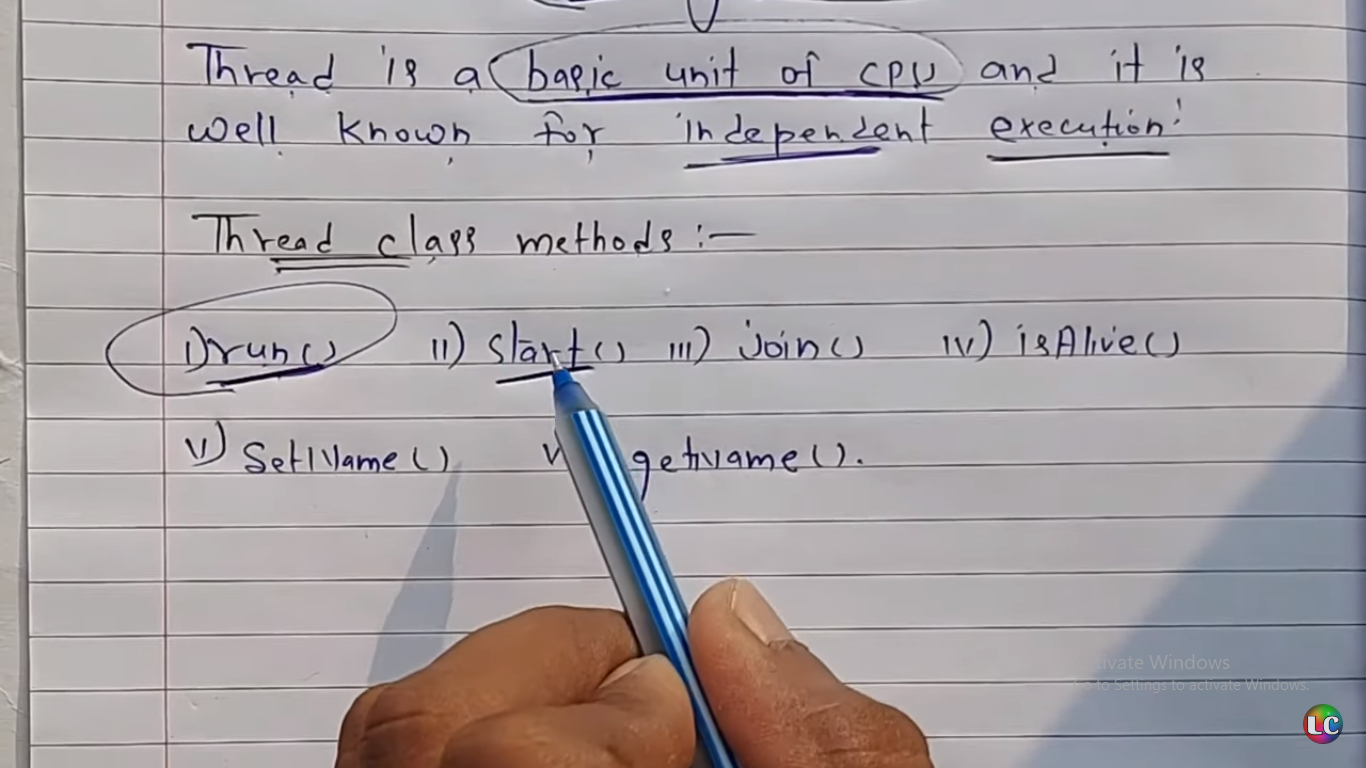 Thread is a basic unit of CPU and it is
well known for independent execution!
Thread class methods :—
i) run() ii) start() iii) join() iv) isAlive()
v) SetName() v getname().
Activate Windows
Go to Settings to activate Windows.
LC